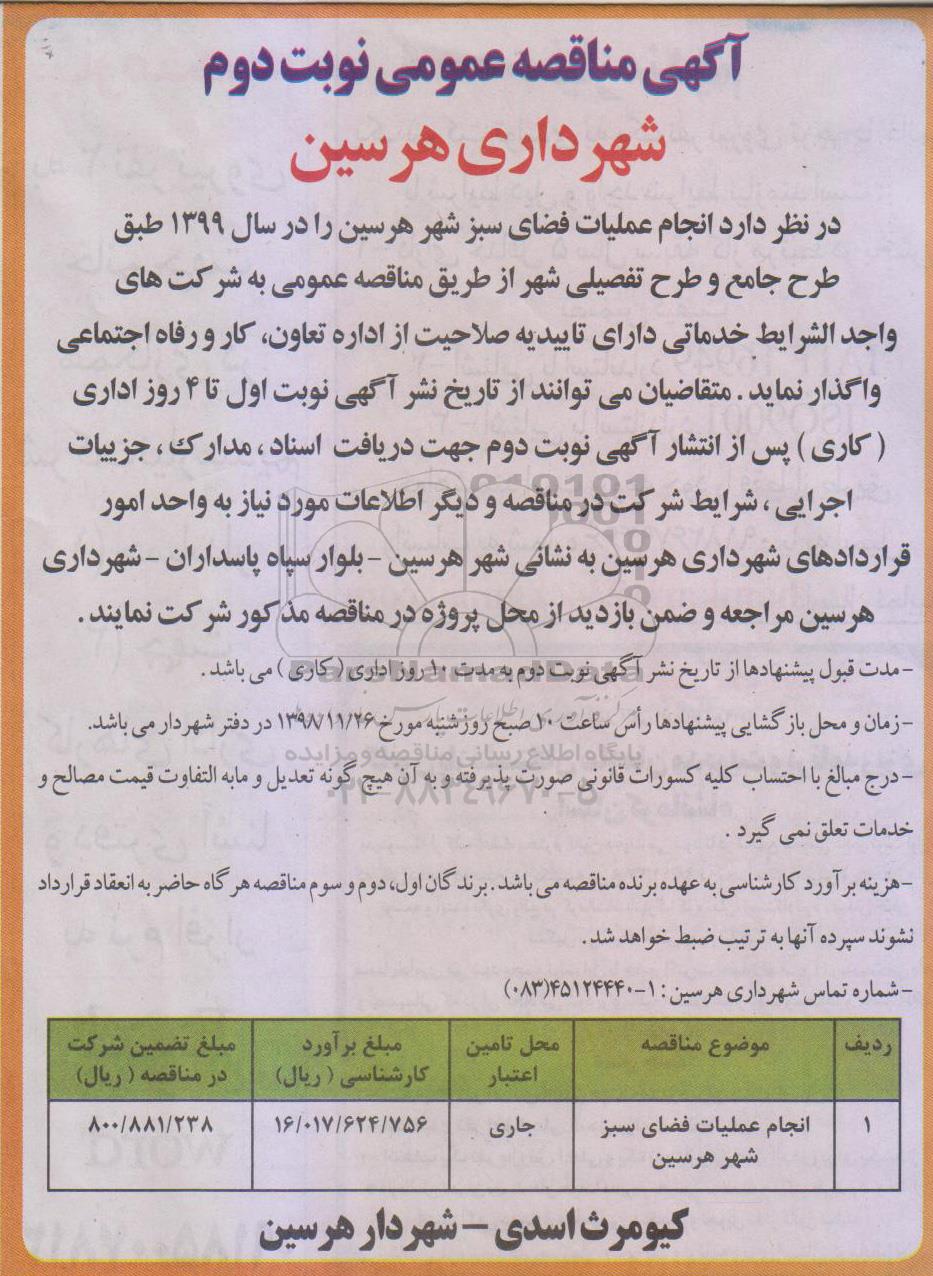 آگهی مناقصه عمومی نوبت دوم
شهرداری هرسین
در نظر دارد انجام عملیات فضای سبز شهر هرسین را در سال ۱۳۹۹ طبق
طرح جامع و طرح تفصیلی شهر از طریق مناقصه عمومی به شرکت های
واجد الشرایط خدماتی دارای تاییدیه صلاحیت از اداره تعاون، کار و رفاه اجتماعی
واگذار نماید . متقاضیان می توانند از تاریخ نشر آگهی نوبت اول تا ۴ روز اداری
( کاری ) پس از انتشار آگهی نوبت دوم جهت دریافت اسناد ، مدارک ، جزییات
اجرایی ، شرایط شرکت در مناقصه و دیگر اطلاعات مورد نیاز به واحد امور
قراردادهای شهرداری هرسین به نشانی شهر هرسین - بلوار سپاه پاسداران - شهرداری
هرسین مراجعه و ضمن بازدید از محل پروژه در مناقصه مذکور شرکت نمایند .
- مدت قبول پیشنهادها از تاریخ نشر آگهی نوبت دوم به مدت ۱۰ روز اداری ( کاری ) می باشد .
- زمان و محل بازگشایی پیشنهادها رأس ساعت ۱۰ صبح روز شنبه مورخ ۱۳۹۸/۱۱/۲۶ در دفتر شهردار می باشد.
- درج مبالغ با احتساب کلیه کسورات قانونی صورت پذیرفته و به آن هیچ گونه تعدیل و مابه التفاوت قیمت مصالح و
خدمات تعلق نمی گیرد .
- هزینه برآورد کارشناسی به عهده برنده مناقصه می باشد . برندگان اول، دوم و سوم مناقصه هرگاه حاضر به انعقاد قرارداد
نشوند سپرده آنها به ترتیب ضبط خواهد شد .
- شماره تماس شهرداری هرسین : ۱-۴۵۱۲۴۴۴۰(۰۸۳)
ردیف موضوع مناقصه محل تامین اعتبار مبلغ برآورد کارشناسی ( ریال) مبلغ تضمین شرکت در مناقصه ( ریال)
۱ انجام عملیات فضای سبز شهر هرسین جاری ۱۶/۰۱۷/۶۲۴/۷۵۶ ۸۰۰/۸۸۱/۲۳۸
کیومرث اسدی - شهردار هرسین
ParsNamadData
پایگاه اطلاع رسانی مناقصه و مزایده